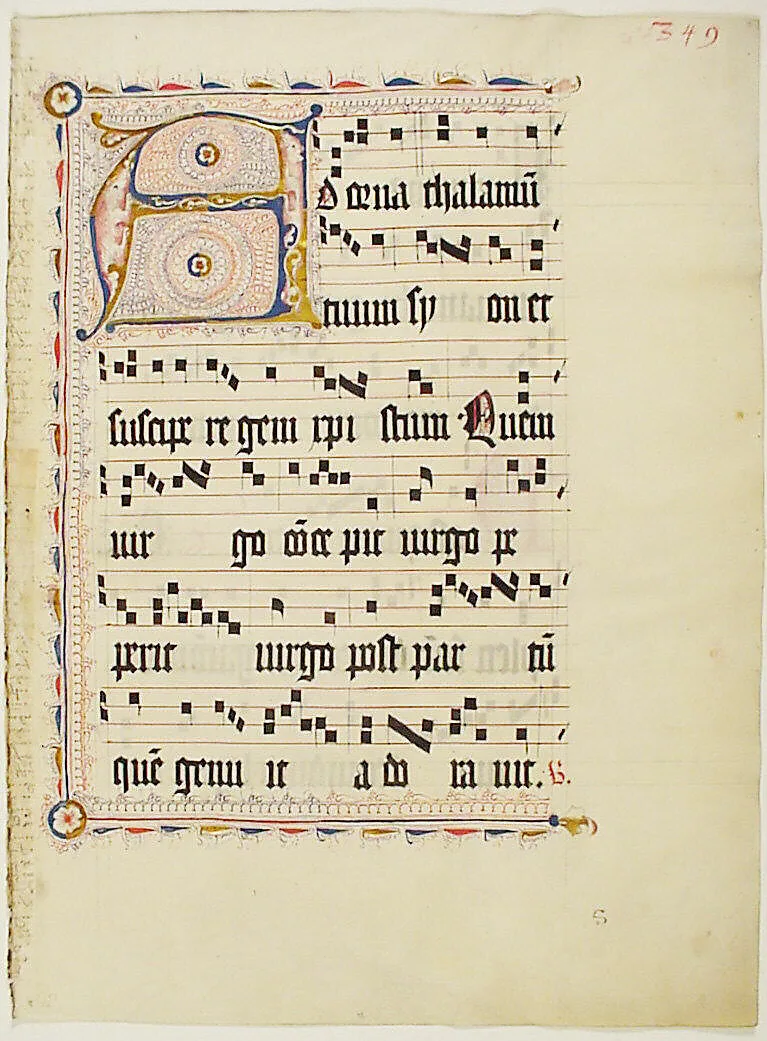 349
Ad orna thalamū
tuum sy on et
suscipe re gem xpi stum Quem
uir go cōce pit uirgo pe
perit uirgo post par tū
quē genu it a do ra uit. V.
S